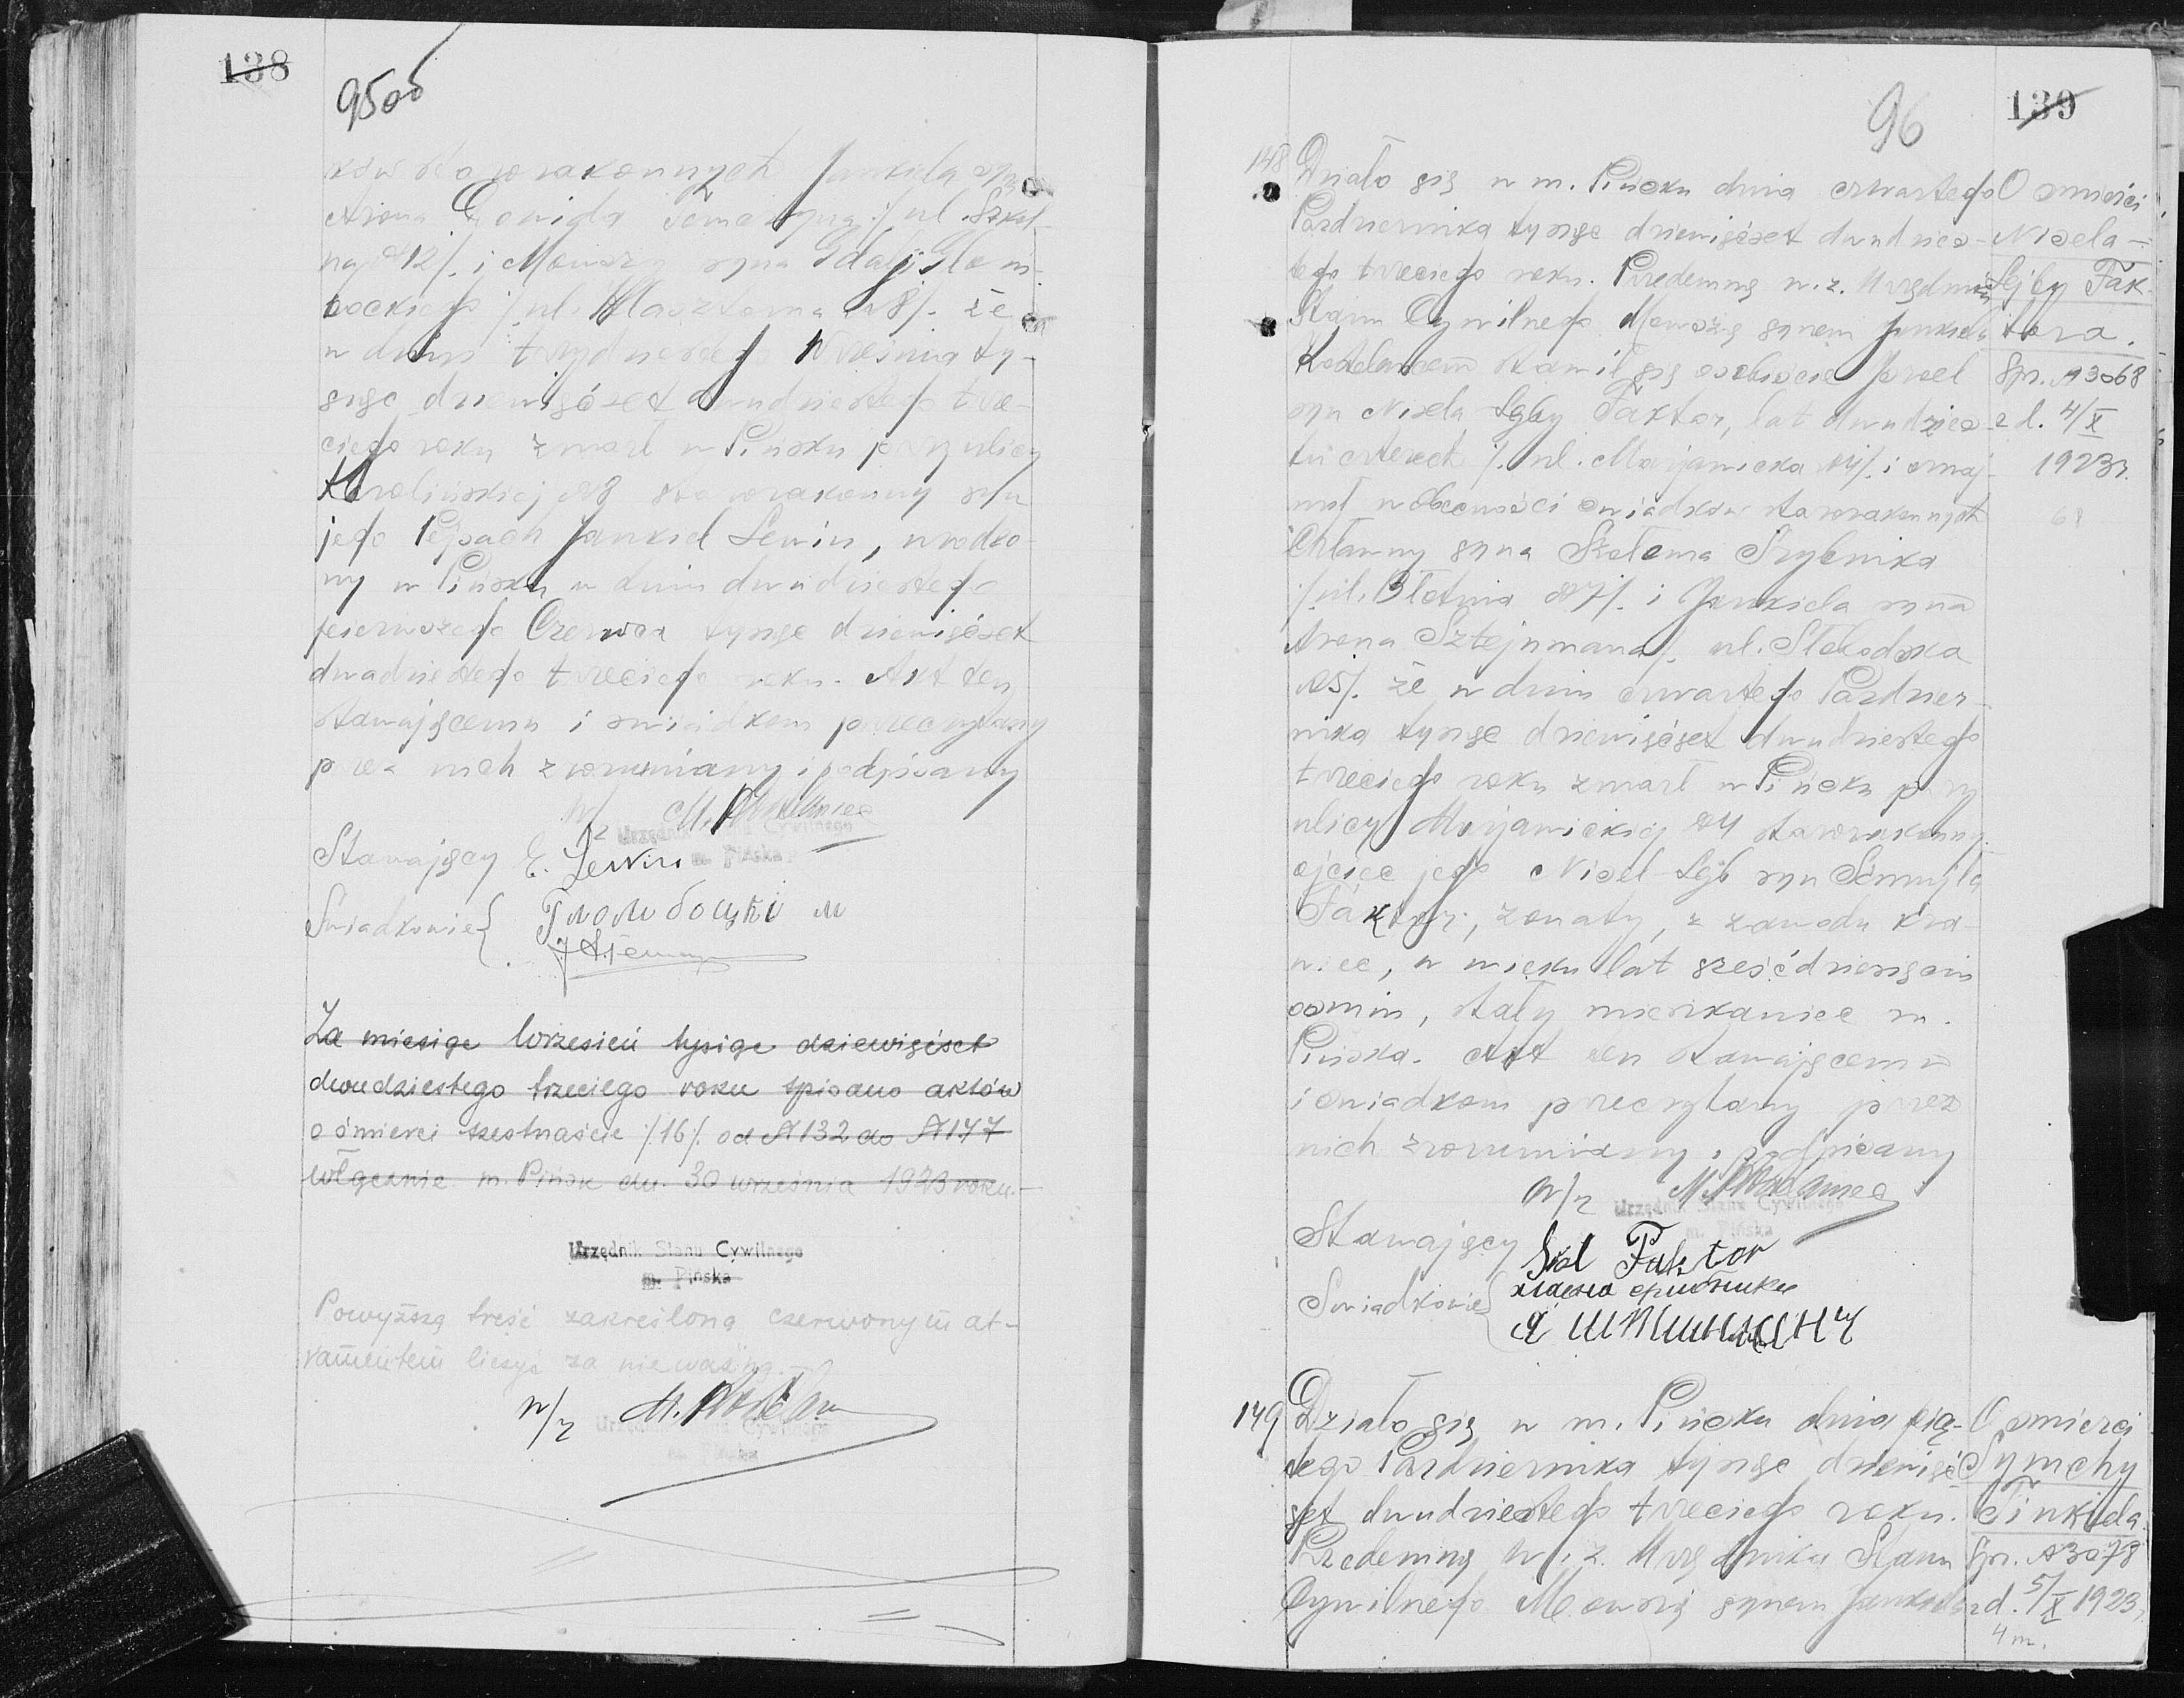 138
95об
ków starozakonnych Jankiela syna
Arona Dowida Temczyna /: ul. Szkol-
na № 12/. i Mowszy syna Gdalj Głom-
bockiego /: ul. Klasztorna № 8/. że
w dniu trzydziestego Września ty-
siąc dziewięćset dwudziestego trze-
ciego roku zmarł w Pińsku przy ulicy
Karolińskiej № 8 starozakonny syn
jego Pejsach Jankiel Lewin, urodzo-
ny w Pińsku w dniu dwudziestego
pierwszego Czerwca tysiąc dziewięćset
dwudziestego trzeciego roku. Akt ten
stawającemu i świadkom przeczytany
przez nich zrozumiany i podpisany
w/z
Urzędnik Stanu Cywilnego
m. Pińska
Stawający E. Lewin
Świadkowie {
Za miesiąc wrzesień tysiąc dziewięćset
dwudziestego trzeciego roku spisano aktów
o śmierci szesnaście /:16/. od № 132 do № 147
włącznie. m. Pińsk dn. 30 września 1923 roku.—
Urzędnik Stanu Cywilnego
m. Pińska
Powyższą treść zakreśloną czerwonym at-
ramentem liczyć za nieważną.
w/z
Urzędnik Stanu Cywilnego
m. Pińska
96
139
148 Działo się w m. Pińsku dnia czwartego
Października tysiąc dziewięćset dwudzies-
tego trzeciego roku. Przedemną w. z. Urzędnika
Stanu Cywilnego Mowszą synem Jankiela
Kodelańcem stawił się osobiście Jsroel
syn Nisela-Lejby Faktor, lat dwudzies-
tu czterech /: ul. Marjawicka № 4/. i oznaj-
mił w obecności świadków starozakonnych
Chławny syna Szołoma Szybnika
/: ul. Błotnia № 7/. i Jankiela syna
Arona Sztejnmana /: ul. Słobodska
№ 5/. że w dniu czwartego Paździer-
nika tysiąc dziewięćset dwudziestego
trzeciego roku zmarł w Pińsku przy
ulicy Marjawickiej № 4 starozakonny
ojciec jego Nisel-Lejb syn Szmujła
Faktor, żonaty, z zawodu kra-
wiec, w wieku lat sześćdziesięciu
ośmiu, stały mieszkaniec m.
Pińska. Akt ten stawającemu
i świadkom przeczytany przez
nich zrozumiany i podpisany
w/z
Urzędnik Stanu Cywilnego
m. Pińska
Stawający Srol Faktor
Świadkowie {
O śmierci
Nisela-
Lejby Fak-
tora.
Spr. № 3068
z d. 4/X
1923 r.
68
149 Działo się w m. Pińsku dnia pią-
tego Października tysiąc dziewięć-
set dwudziestego trzeciego roku.
Przedemną w. z. Urzędnika Stanu
Cywilnego Mowszą synem Jankiela
O śmierci
Symchy
Finkiela
Spr. № 3078
z d. 5/X 1923 r.
4 m.